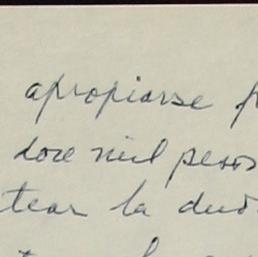 apropiarse p
doce mil pesos
tear la dud